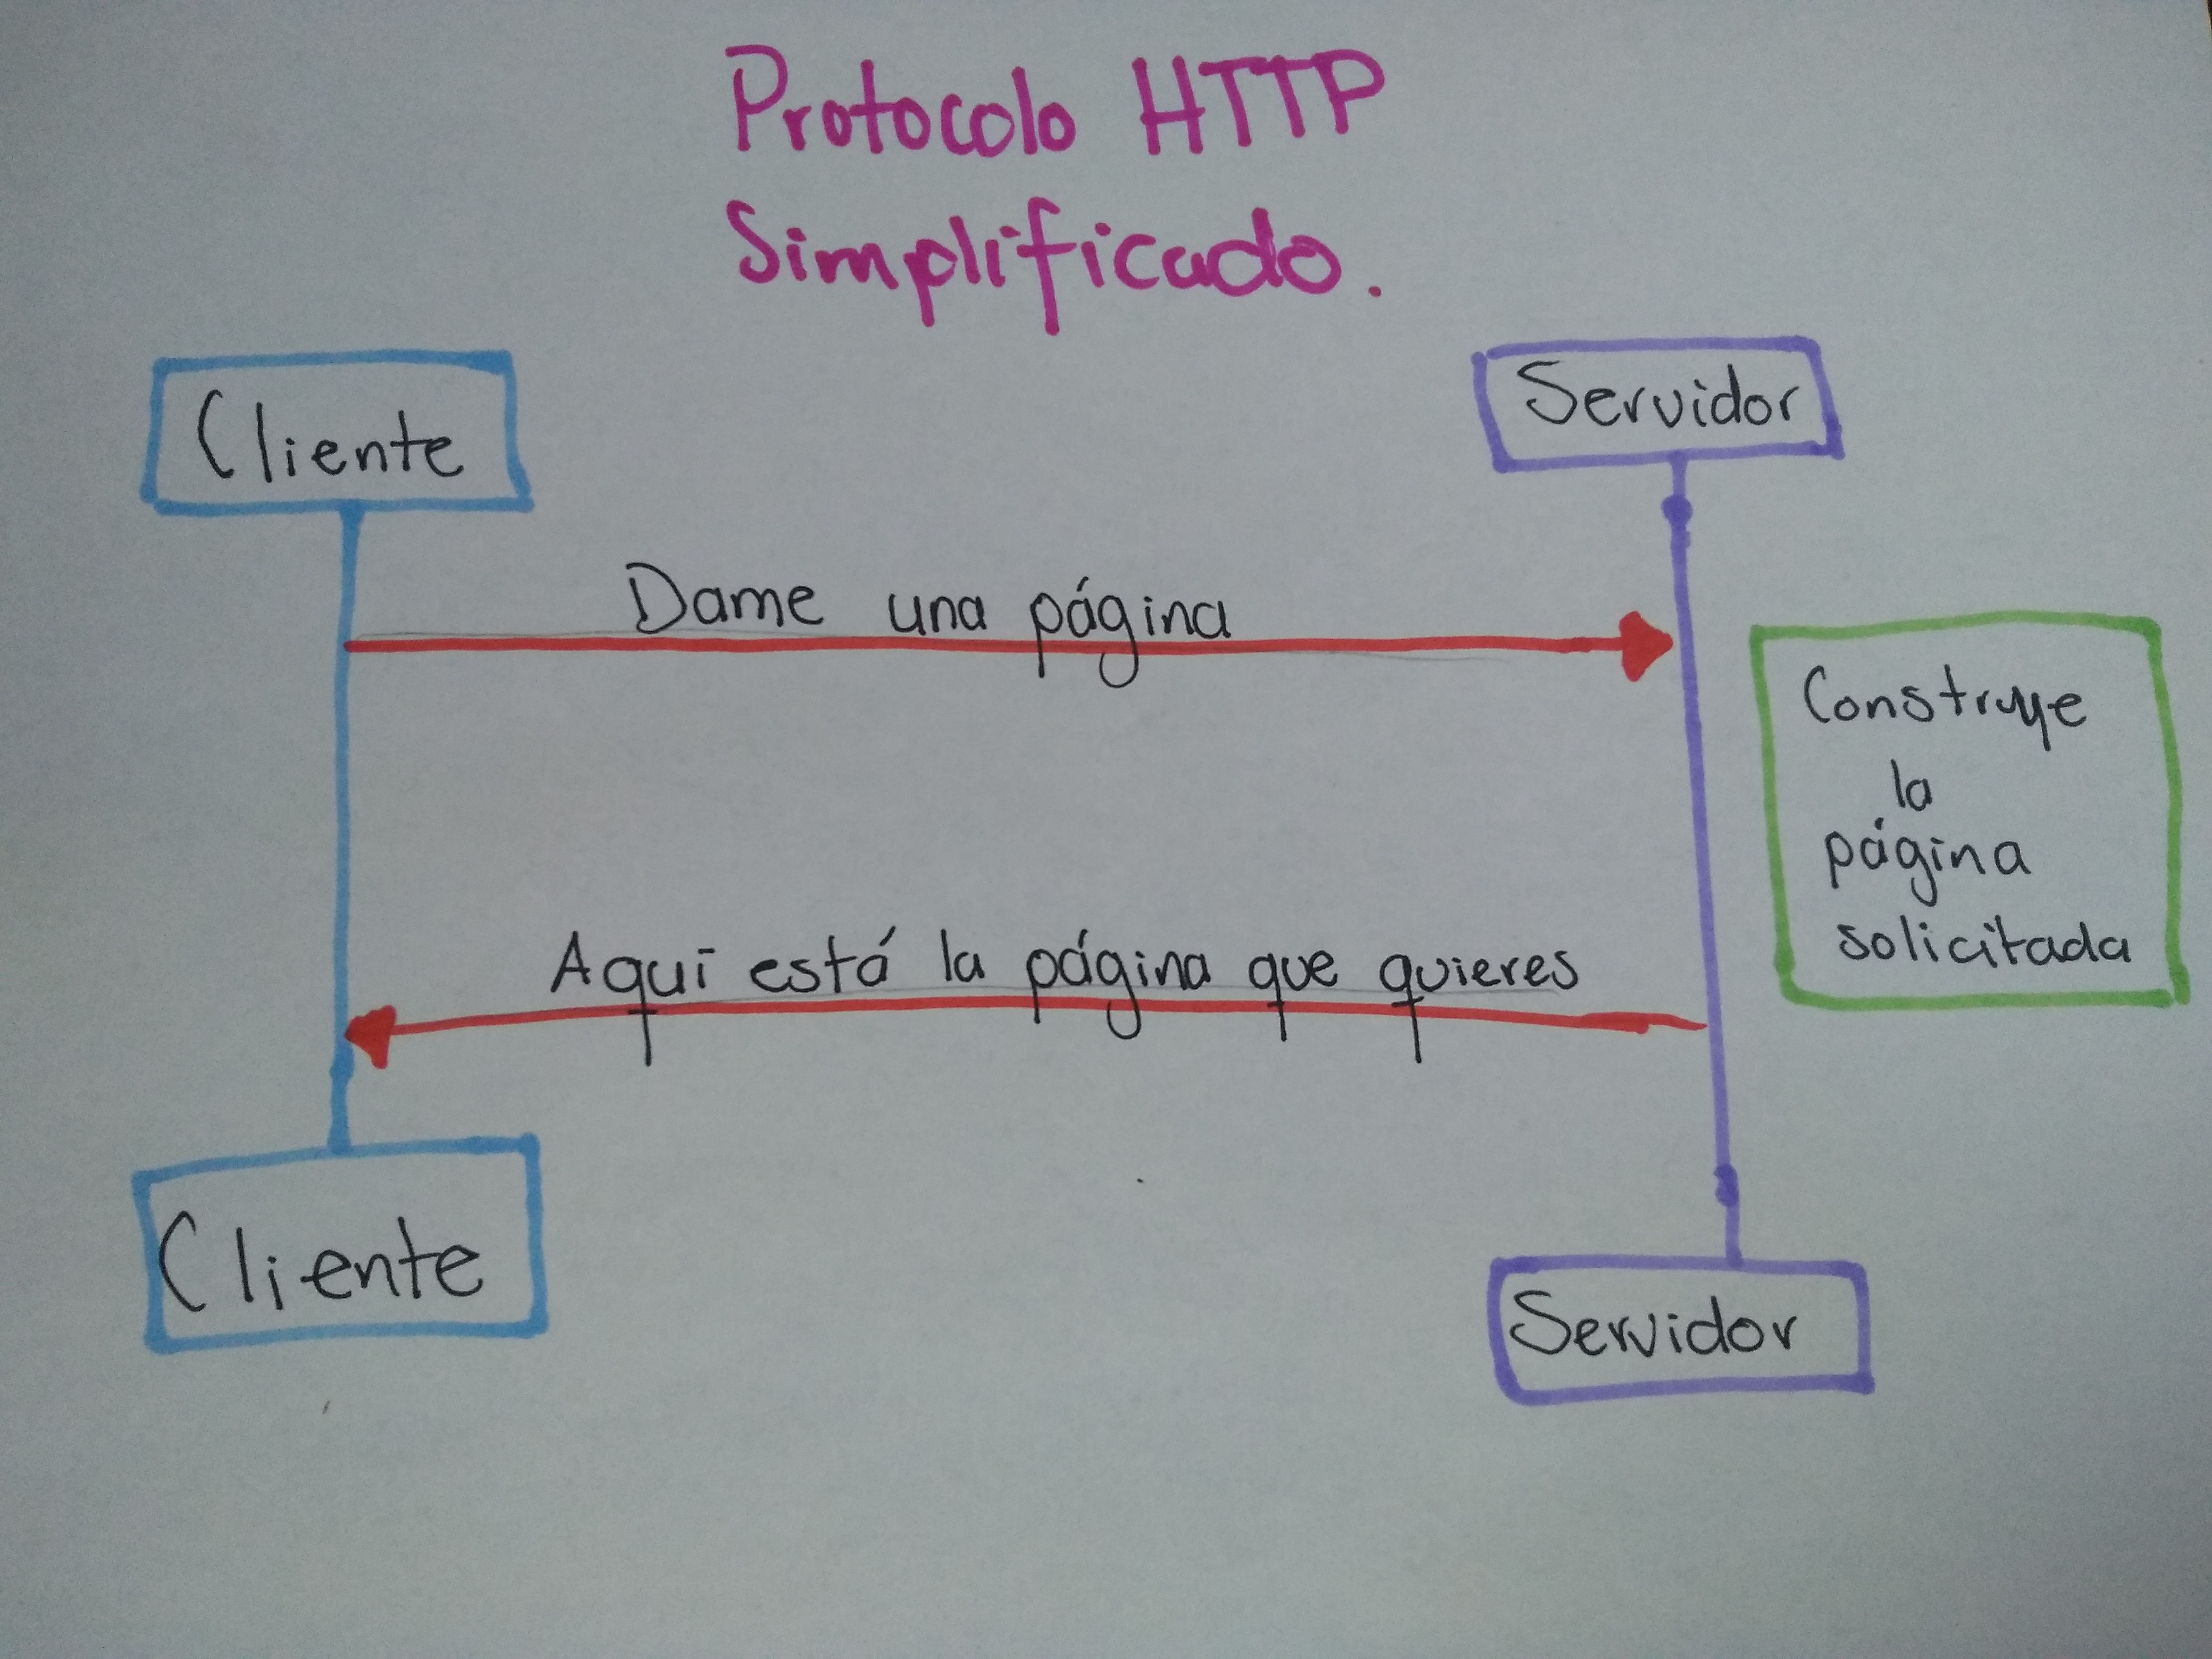 Protocolo HTTP
Simplificado.
Cliente
Servidor
Dame una página
Construye
la
página
solicitada
Aquí está la página que quieres
Cliente
Servidor